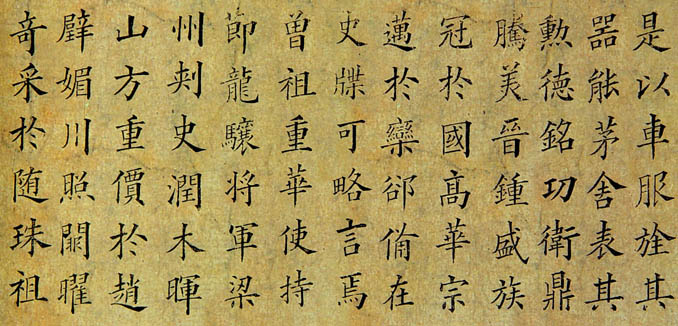 是以車服旌其
器能茅舍表其
勳德銘功衛鼎
騰美晉鍾盛族
冠於國高華宗
邁於欒郤俻在
史牒可略言焉
曾祖重華使持
節龍驤将軍梁
州刾史潤木暉
山方重價於趙
璧媚川照闕曜
奇采於随珠祖